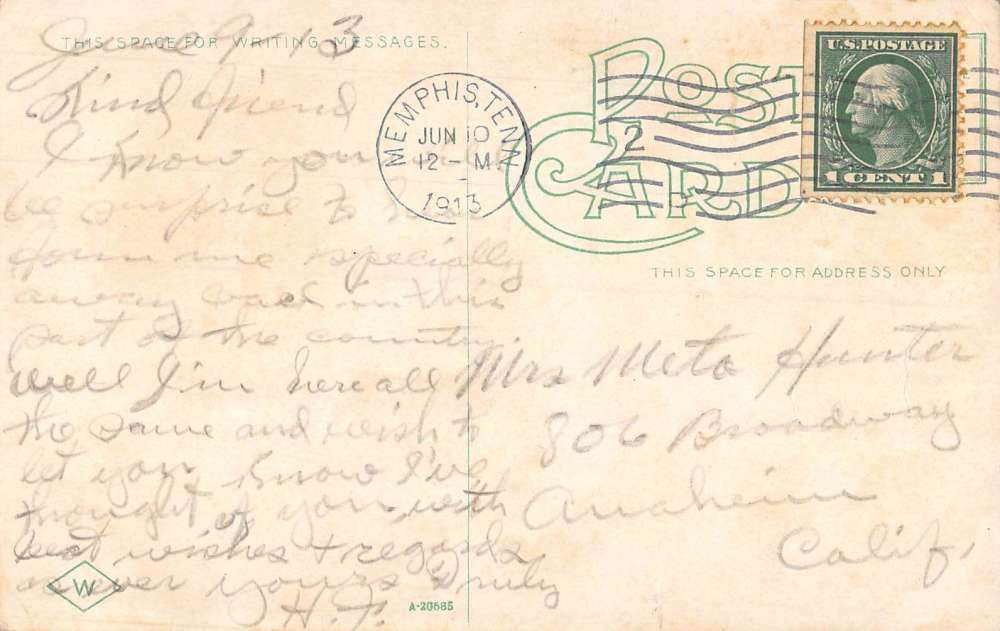 THIS SPACE FOR WRITING MESSAGES.
June 9-13
Kind Friend
I know you
be surprise to
from me especially
away back in this
part of the country.
well I'm here all
the same and wish to
let you know I've
thought of you with
best wishes + regards
as ever yours truly
H.F.
W
A-20685
MEMPHIS, TENN
JUN 10
12-M
1913
2
POST CARD
U.S. POSTAGE
1 CENT 1
THIS SPACE FOR ADDRESS ONLY
Mrs Meta Hunter
806 Broadway
Anaheim
Calif.